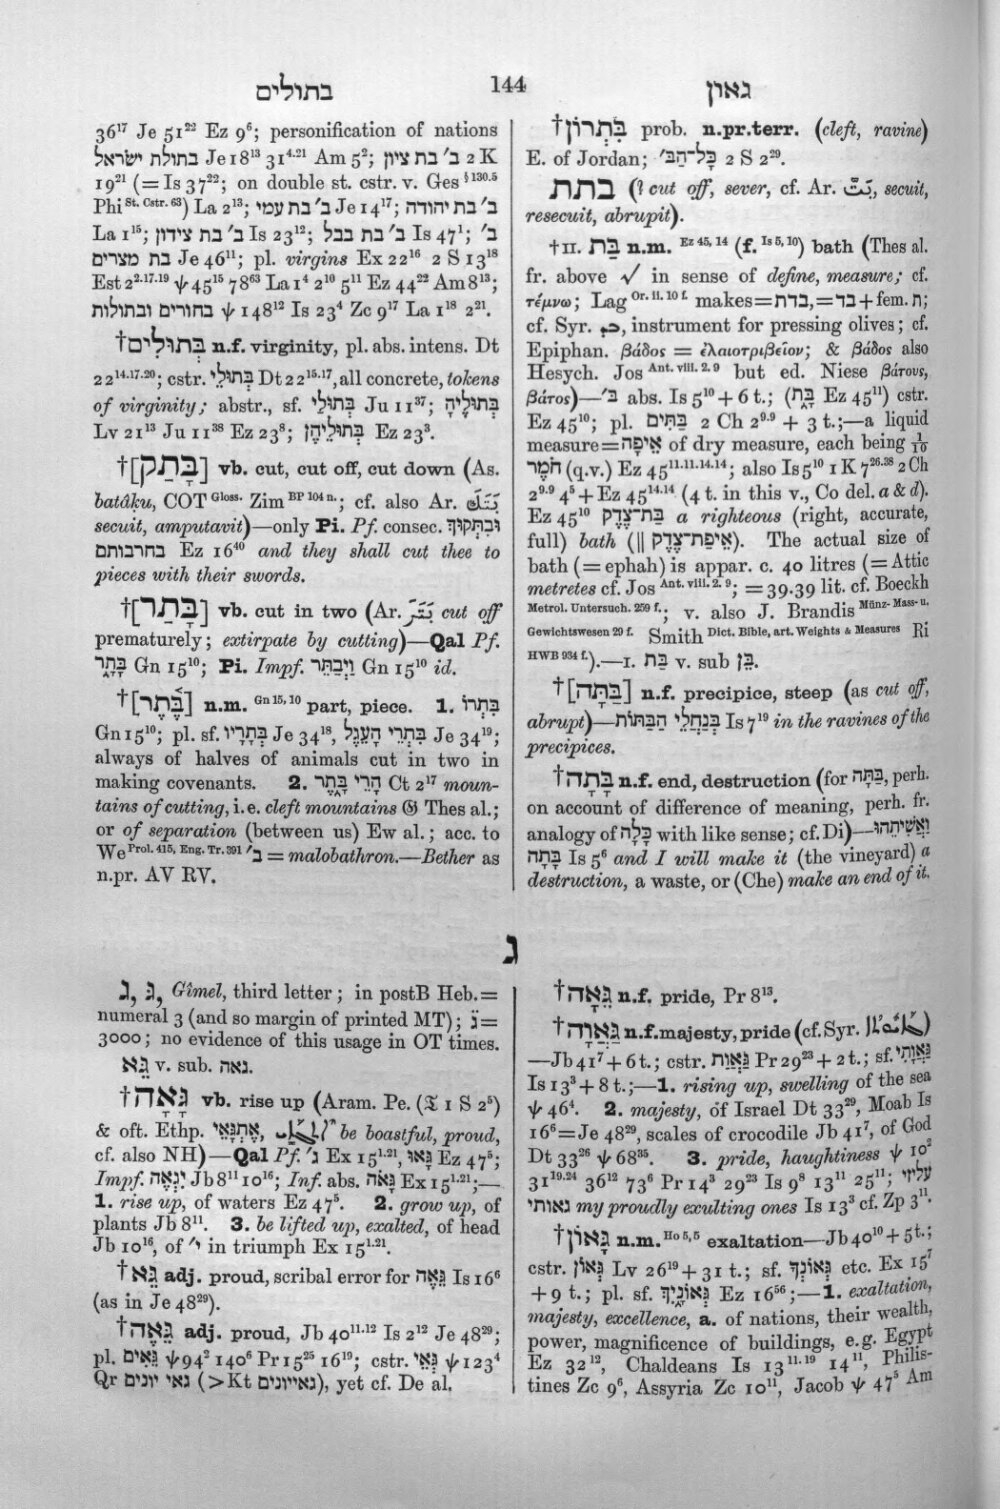 בתולים
144
גאון
36¹⁷ Je 51²² Ez 9⁶; personification of nations
בתולת ישראל Je 18¹³ 31⁴·²¹ Am 5²; ב׳ בת ציון 2 K
19²¹ (= Is 37²²; on double st. cstr. v. Ges §130.5
Phi St. Cstr. 63) La 2¹³; ב׳ בת עמי Je 14¹⁷; ב׳ בת יהודה
La 1¹⁵; ב׳ בת צידון Is 23¹²; ב׳ בת בבל Is 47¹; ב׳
בת מצרים Je 46¹¹; pl. virgins Ex 22¹⁶ 2 S 13¹⁸
Est 2²·¹⁷·¹⁹ ψ 45¹⁵ 78⁶³ La 1⁴ 2¹⁰ 5¹¹ Ez 44²² Am 8¹³;
בחורים ובתולות ψ 148¹² Is 23⁴ Zc 9¹⁷ La 1¹⁸ 2²¹.
†בְּתוּלִים n.f. virginity, pl. abs. intens. Dt
22¹⁴·¹⁷·²⁰; cstr. בְּתוּלֵי Dt 22¹⁵·¹⁷, all concrete, tokens
of virginity; abstr., sf. בְּתוּלַי Ju 11³⁷; בְּתוּלֶיהָ
Lv 21¹³ Ju 11³⁸ Ez 23⁸; בְּתוּלֵיהֶן Ez 23³.
†[בָּתַק] vb. cut, cut off, cut down (As.
batâḳu, COT Gloss. Zim BP 104 n.; cf. also Ar. بَتَكَ
secuit, amputavit)—only Pi. Pf. consec. וּבִתְּקוּךְ
בחרבותם Ez 16⁴⁰ and they shall cut thee to
pieces with their swords.
†[בָּתַר] vb. cut in two (Ar. بَتَرَ cut off
prematurely; extirpate by cutting)—Qal Pf.
בָּתָר Gn 15¹⁰; Pi. Impf. וַיְבַתֵּר Gn 15¹⁰ id.
†[בֶּתֶר] n.m. Gn 15, 10 part, piece. 1. בִּתְרוֹ
Gn 15¹⁰; pl. sf. בְּתָרָיו Je 34¹⁸, בִּתְרֵי הָעֵגֶל Je 34¹⁹;
always of halves of animals cut in two in
making covenants. 2. הָרֵי בָתֶר Ct 2¹⁷ moun-
tains of cutting, i.e. cleft mountains 𝔊 Thes al.;
or of separation (between us) Ew al.; acc. to
We Prol. 415, Eng. Tr. 391 ב׳ = malobathron.—Bether as
n.pr. AV RV.
†בִּתְרוֹן prob. n.pr.terr. (cleft, ravine)
E. of Jordan; כָּל־הַבּ׳ 2 S 2²⁹.
בתת (? cut off, sever, cf. Ar. بَتَّ, secuit,
resecuit, abrupit).
†II. בַּת n.m. Ez 45, 14 (f. Is 5, 10) bath (Thes al.
fr. above √ in sense of define, measure; cf.
τέμνω; Lag Or. ii. 10 f. makes = בדת, = בד + fem. ת;
cf. Syr. , instrument for pressing olives; cf.
Epiphan. βάδος = ἐλαιοτριβεῖον; & βάδος also
Hesych. Jos Ant. viii. 2. 9 but ed. Niese βάτους,
βάτος)—ב׳ abs. Is 5¹⁰ + 6 t.; (בָּת Ez 45¹¹) cstr.
Ez 45¹⁰; pl. בַּתִּים 2 Ch 2⁹·⁹ + 3 t.;—a liquid
measure = אֵיפָה of dry measure, each being 1/10
חֹמֶר (q.v.) Ez 45¹¹·¹¹·¹⁴·¹⁴; also Is 5¹⁰ 1 K 7²⁶·³⁸ 2 Ch
2⁹·⁹ 4⁵ + Ez 45¹⁴·¹⁴ (4 t. in this v., Co del. a & d).
Ez 45¹⁰ בַּת־צֶדֶק a righteous (right, accurate,
full) bath (‖ אֵיפַת־צֶדֶק). The actual size of
bath (= ephah) is appar. c. 40 litres (= Attic
metretes cf. Jos Ant. viii. 2. 9; = 39·39 lit. cf. Boeckh
Metrol. Untersuch. 259 f.; v. also J. Brandis Münz- Mass- u.
Gewichtswesen 29 f. Smith Dict. Bible, art. Weights & Measures Ri
HWB 934 f.).—I. בַּת v. sub בֵּן.
†[בַּתָּה] n.f. precipice, steep (as cut off,
abrupt)—בְּנַחֲלֵי הַבַּתּוֹת Is 7¹⁹ in the ravines of the
precipices.
†בָּתָה n.f. end, destruction (for בַּתָּה, perh.
on account of difference of meaning, perh. fr.
analogy of כָּלָה with like sense; cf. Di)—וַאֲשִׁיתֵהוּ
בָתָה Is 5⁶ and I will make it (the vineyard) a
destruction, a waste, or (Che) make an end of it.
ג
ג, גּ, Gîmel, third letter; in postB Heb. =
numeral 3 (and so margin of printed MT); ג̈ =
3000; no evidence of this usage in OT times.
גֵּא v. sub. גאה.
†גָּאָה vb. rise up (Aram. Pe. (𝔗 1 S 2⁵)
& oft. Ethp. אֶתְגָּאֵי, be boastful, proud,
cf. also NH)—Qal Pf. ג׳ Ex 15¹·²¹, גָּאוּ Ez 47⁵;
Impf. יִגְאֶה Jb 8¹¹ 10¹⁶; Inf. abs. גָּאֹה Ex 15¹·²¹;—
1. rise up, of waters Ez 47⁵. 2. grow up, of
plants Jb 8¹¹. 3. be lifted up, exalted, of head
Jb 10¹⁶, of י׳ in triumph Ex 15¹·²¹.
†גֵּא adj. proud, scribal error for גֵּאֶה Is 16⁶
(as in Je 48²⁹).
†גֵּאֶה adj. proud, Jb 40¹¹·¹² Is 2¹² Je 48²⁹;
pl. גֵּאִים ψ 94² 140⁶ Pr 15²⁵ 16¹⁹; cstr. גְּאֵי ψ 123⁴
Qr גאי יונים (> Kt גאייונים), yet cf. De al.
†גֵּאָה n.f. pride, Pr 8¹³.
†גַּאֲוָה n.f. majesty, pride (cf. Syr. )
—Jb 41⁷ + 6 t.; cstr. גַּאֲוַת Pr 29²³ + 2 t.; sf. גַּאֲוָתִי
Is 13³ + 8 t.;—1. rising up, swelling of the sea
ψ 46⁴. 2. majesty, of Israel Dt 33²⁹, Moab Is
16⁶ = Je 48²⁹, scales of crocodile Jb 41⁷, of God
Dt 33²⁶ ψ 68³⁵. 3. pride, haughtiness ψ 10²
31¹⁹·²⁴ 36¹² 73⁶ Pr 14³ 29²³ Is 9⁸ 13¹¹ 25¹¹; עליזי
גאותי my proudly exulting ones Is 13³ cf. Zp 3¹¹.
†גָּאוֹן n.m. Ho 5, 5 exaltation—Jb 40¹⁰ + 5 t.;
cstr. גְּאוֹן Lv 26¹⁹ + 31 t.; sf. גְּאוֹנְךָ etc. Ex 15⁷
+ 9 t.; pl. sf. גְּאוֹנָיִךְ Ez 16⁵⁶;—1. exaltation,
majesty, excellence, a. of nations, their wealth,
power, magnificence of buildings, e.g. Egypt
Ez 32¹², Chaldeans Is 13¹¹·¹⁹ 14¹¹, Philis-
tines Zc 9⁶, Assyria Zc 10¹¹, Jacob ψ 47⁵ Am